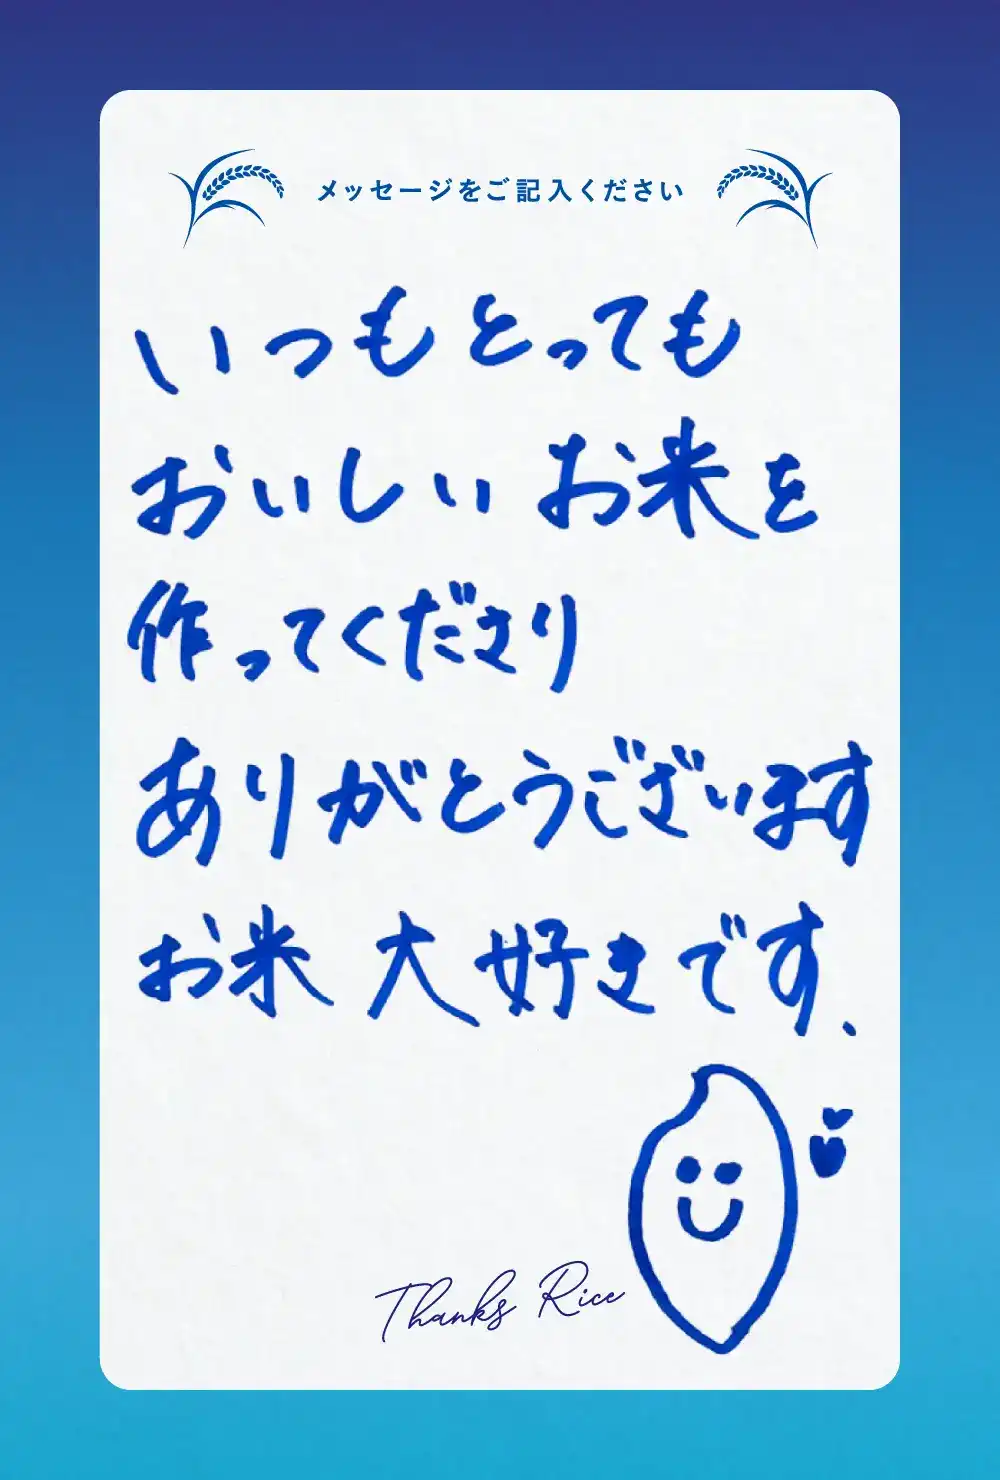 メッセージをご記入ください
いつもとっても
おいしいお米を
作ってくださり
ありがとうございます
お米大好きです、
Thanks Rice